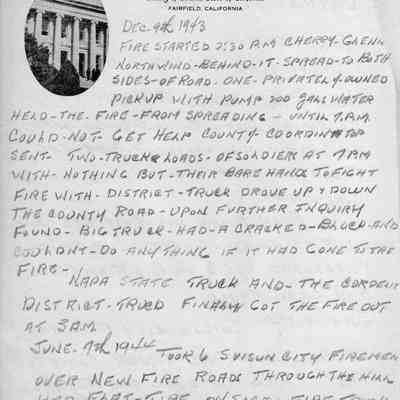 FAIRFIELD, CALIFORNIA
DEC. 9th 1943
FIRE STARTED 2:30 P.M CHERRY-GLENN
NORTHWIND-BEHIND-IT SPREAD-TO BOTH
SIDES-OF ROAD. ONE-PRIVATELY OWNED
PICKUP WITH PUMP 200 GALS WATER
HELD-THE FIRE-FROM SPREADING - UNTIL 7 P.M.
COULD-NOT-GET HELP COUNTY-COORDINATOR
SENT- TWO-TRUCK LOADS-OF SOLDIER AT 7 PM
WITH-NOTHING BUT-THEIR BARE HAND TO FIGHT
FIRE WITH-DISTRICT-TRUCK DROVE UP & DOWN
THE COUNTY ROAD-UPON FURTHER INQUIRY
FOUND-BIG TRUCK-HAD-A CRACKED-BLOCK-AND
COULDN'T-DO ANYTHING IF IT HAD GONE TO THE
FIRE-
NAPA STATE TRUCK AND-THE CORDELIA
DISTRICT-TRUCK FINALLY GOT THE FIRE OUT
AT 3 AM.
JUNE-7th 1944
TOOK 6 SUISUN CITY FIREMEN
OVER NEW FIRE ROADS THROUGH THE HILL
HAD FLAT-TIRE FIRE